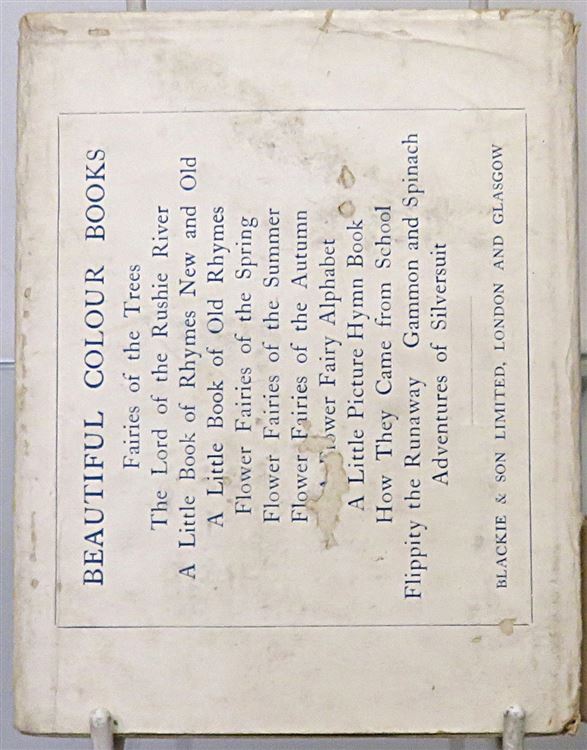 BEAUTIFUL COLOUR BOOKS
Fairies of the Trees
The Lord of the Rushie River
A Little Book of Rhymes New and Old
A Little Book of Old Rhymes
Flower Fairies of the Spring
Flower Fairies of the Summer
Flower Fairies of the Autumn
Flower Fairy Alphabet
A Little Picture Hymn Book
How They Came from School
Flippity the Runaway Gammon and Spinach
Adventures of Silversuit
BLACKIE & SON LIMITED, LONDON AND GLASGOW